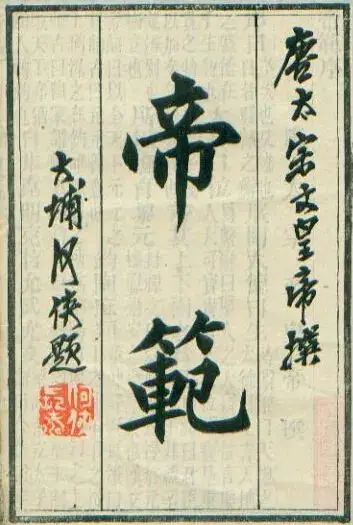 唐太宗文皇帝撰
帝範
大埔何俠題